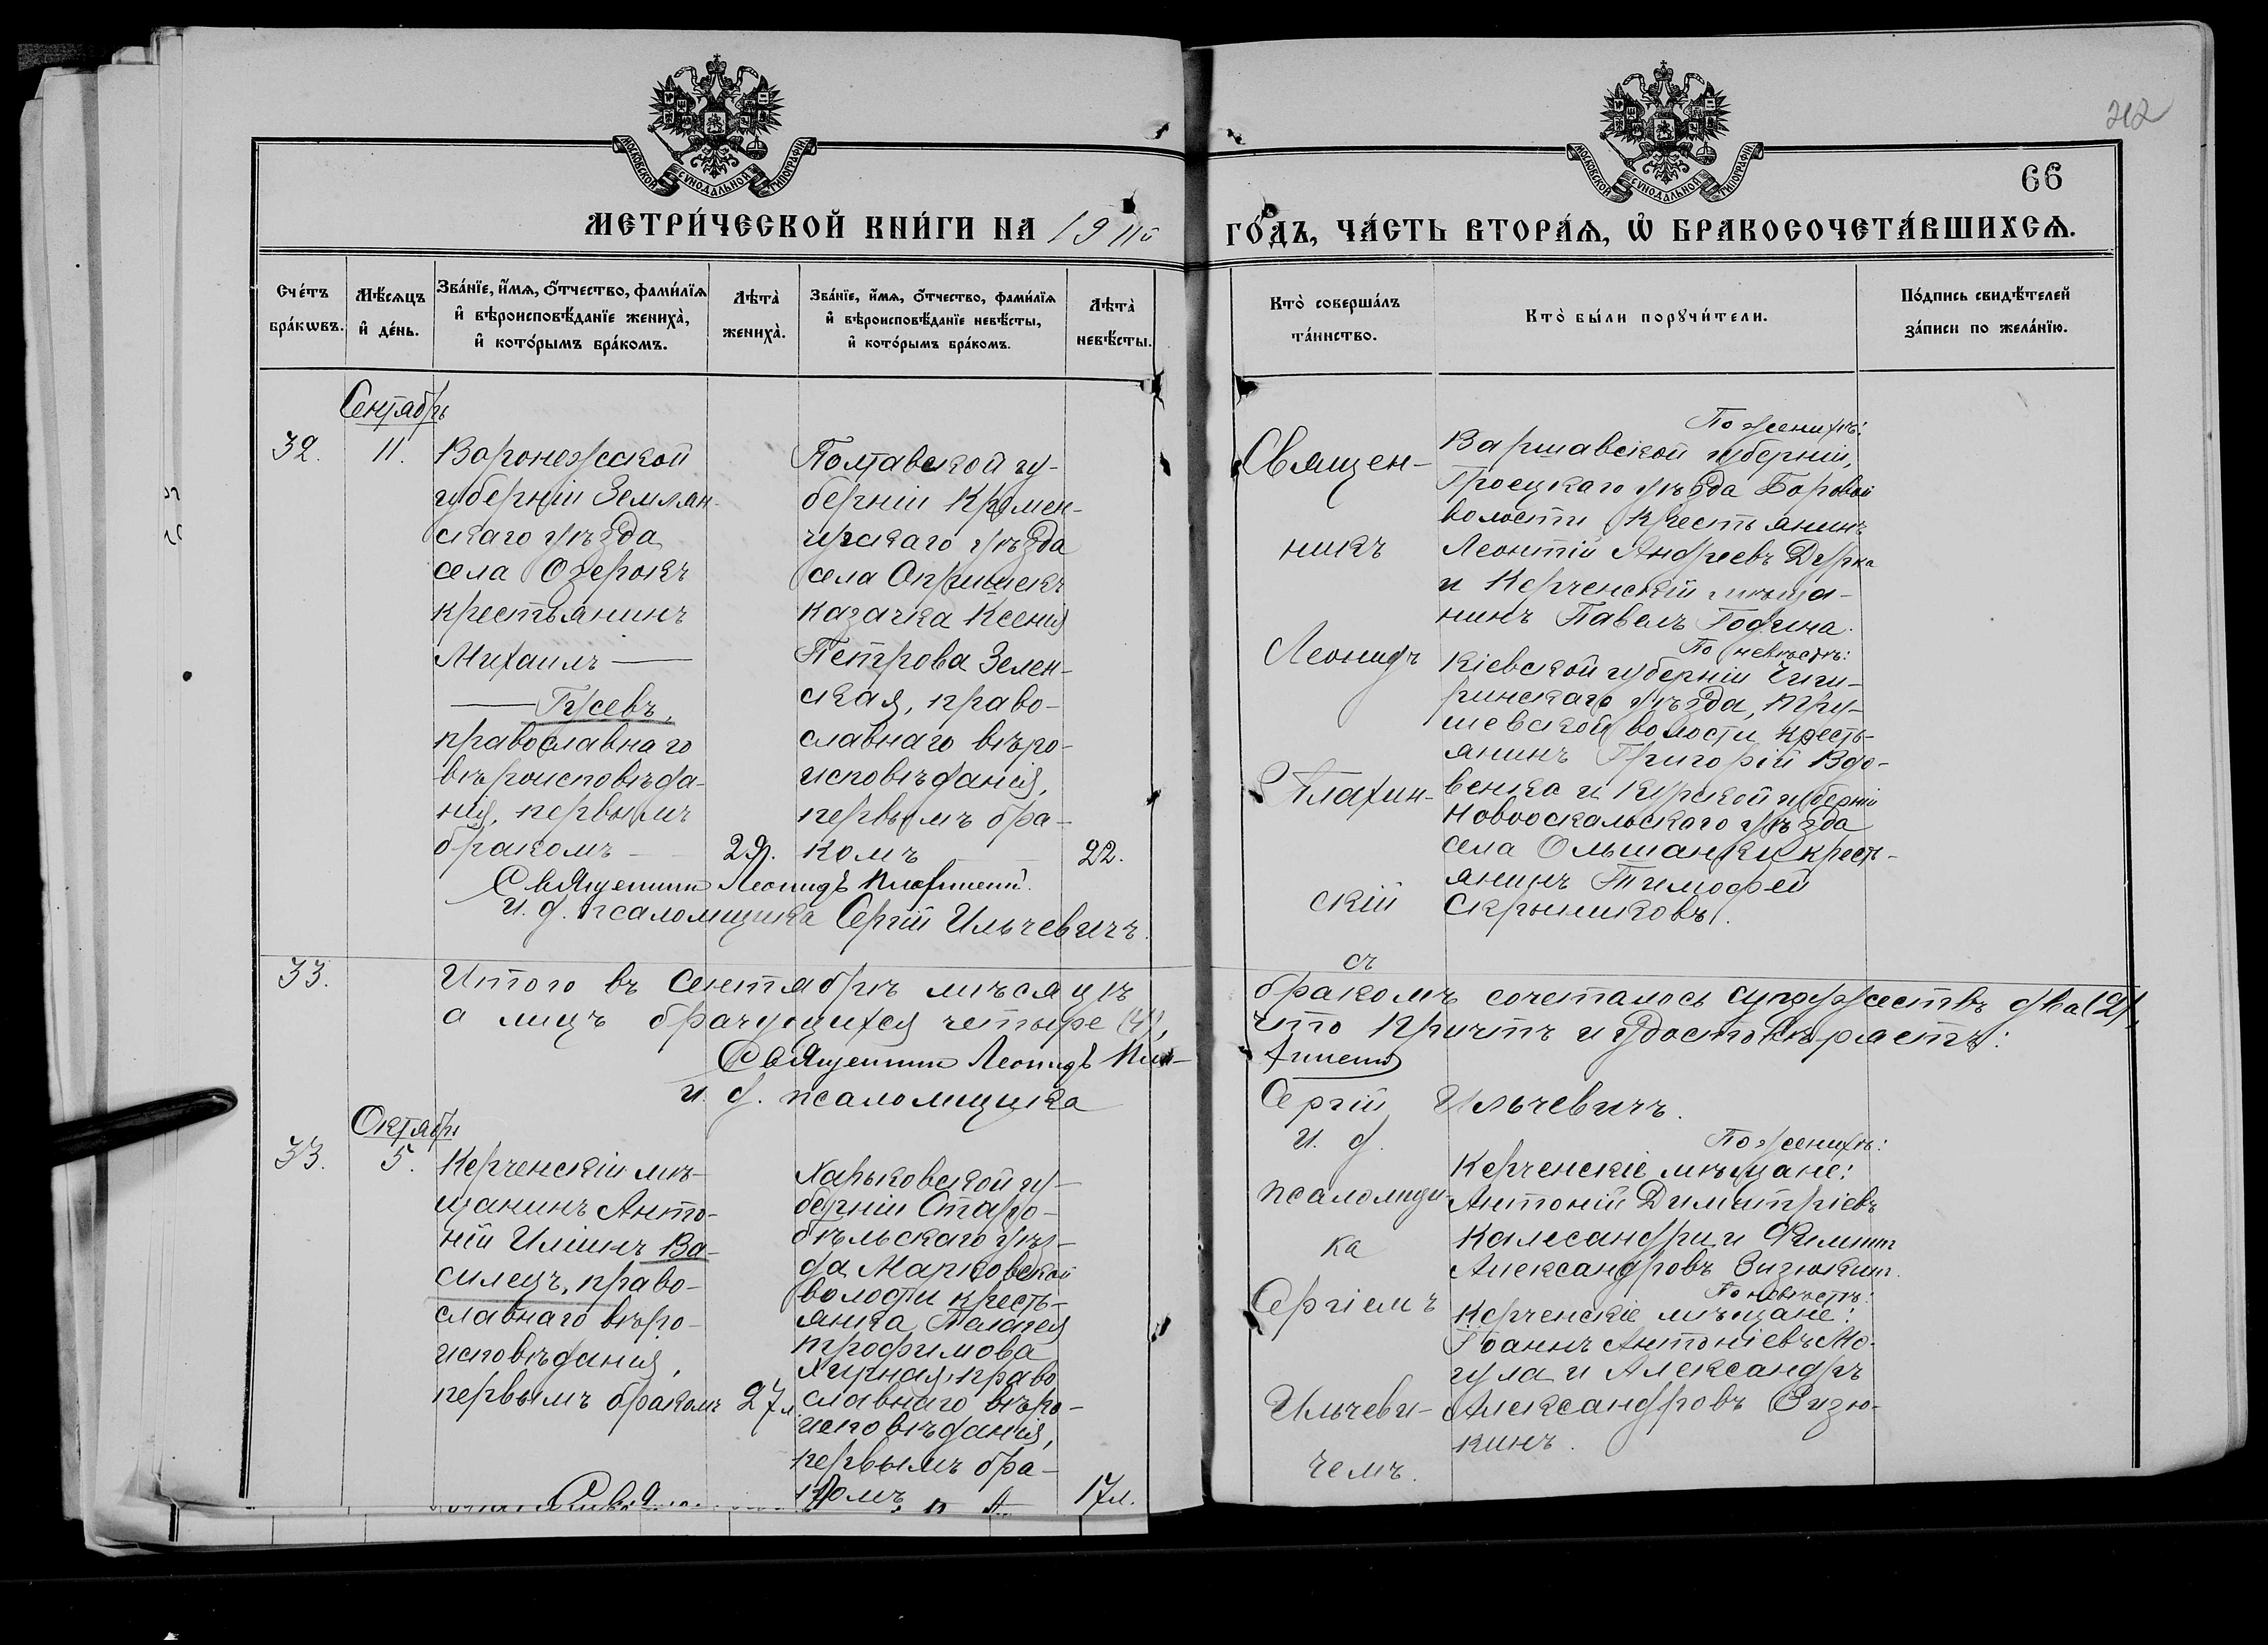 212
66
МОСКОВСКОЙ СУНОДАЛЬНОЙ ТИПОГРАФІИ
МОСКОВСКОЙ СУНОДАЛЬНОЙ ТИПОГРАФІИ
МЕТРИ́ЧЕСКОЙ КНИ́ГИ НА 1911й
ГО́ДЪ, ЧА́СТЬ ВТОРА́Я, Ѡ БРАКОСОЧЕТА́ВШИХСѦ.
Сче́тъ бра́кѡвъ.
Мѣ́сяцъ и де́нь.
Зва́нїе, и́мѧ, ѻ́тчество, фами́лїѧ и вѣроисповѣ́данїе жениха̀, и кото́рымъ бра́комъ.
Лѣта̀ жениха̀.
Зва́нїе, и́мѧ, ѻ́тчество, фами́лїѧ и вѣроисповѣ́данїе невѣ́сты, и кото́рымъ бра́комъ.
Лѣта̀ невѣ́сты.
Кто̀ соверша́лъ та́инство.
Кто̀ бы́ли порꙋчи́тели.
По́дпись свидѣ́телей за́писи по жела́нїю.
Сентябрь
32.
11.
Воронежской
губерніи Землян-
скаго уѣзда
села Озерокъ
крестьянинъ
Михаилъ —
— Гусевъ,
православнаго
вѣроисповѣда-
нія, первымъ
бракомъ —
29.
Полтавской гу-
берніи Кремен-
чугскаго уѣзда
села Опришекъ
казачка Ксенія
Петрова Зелен-
ская, право-
славнаго вѣро-
исповѣданія,
первымъ бра-
комъ
22.
Священникъ Леонидъ Плахинскій.
И. д. псаломщика Сергій Ильчевичъ.
Священ-
никъ
Леонидъ
Плахин-
скій
съ
По женихѣ:
Варшавской губерніи,
Гроецкаго уѣзда Боровой
волости крестьянинъ
Леонтій Андреевъ Дурка
и Керченскій мѣща-
нинъ Павелъ Година.
По невѣстѣ:
Кіевской губерніи Чиги-
ринскаго уѣзда, Тру-
шевской волости кресть-
янинъ Григорій Вдо-
венко и Курской губерніи
Новооскольскаго уѣзда
села Ольшанки крест-
янинъ Тимофей
Скрынниковъ.
33.
Итого въ Сентябрѣ мѣсяцѣ
бракомъ сочеталось супружествъ два (2),
а лицъ брачущихся четыре (4),
что Причтъ и удостовѣряетъ:
Священникъ Леонидъ Пла-
хинскій
и. д. псаломщика
Сергій Ильчевичъ.
Октябрь
33.
5.
Керченскій мѣ-
щанинъ Анто-
ній Иліинъ Ва-
силецъ, право-
славнаго вѣро-
исповѣданія,
первымъ бракомъ
27 л.
Харьковской гу-
берніи Старо-
бѣльскаго уѣз-
да Марковской
волости кресть-
янка Пелагея
Трофимова
право
славнаго вѣро-
исповѣданія,
первымъ бра-
комъ
17 л.
И. д.
псаломщи-
ка
Сергіемъ
Ильчеви-
чемъ.
По женихѣ:
Керченскіе мѣщане:
Антоній Димитріевъ
Калесандри и Филиппъ
Александровъ Зизюкинъ.
По невѣстѣ:
Керченскіе мѣщане:
Іоаннъ Антоніевъ Мо-
гула и Александръ
Александровъ Зизю-
кинъ.